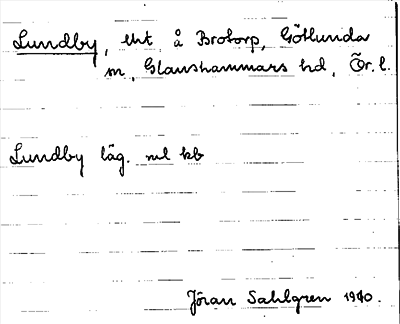 Lundby, lht å Brotorp, Götlunda
sn, Glanshammars hd, Ör. l.
Lundby läg. nvl kb
Jöran Sahlgren 1940.